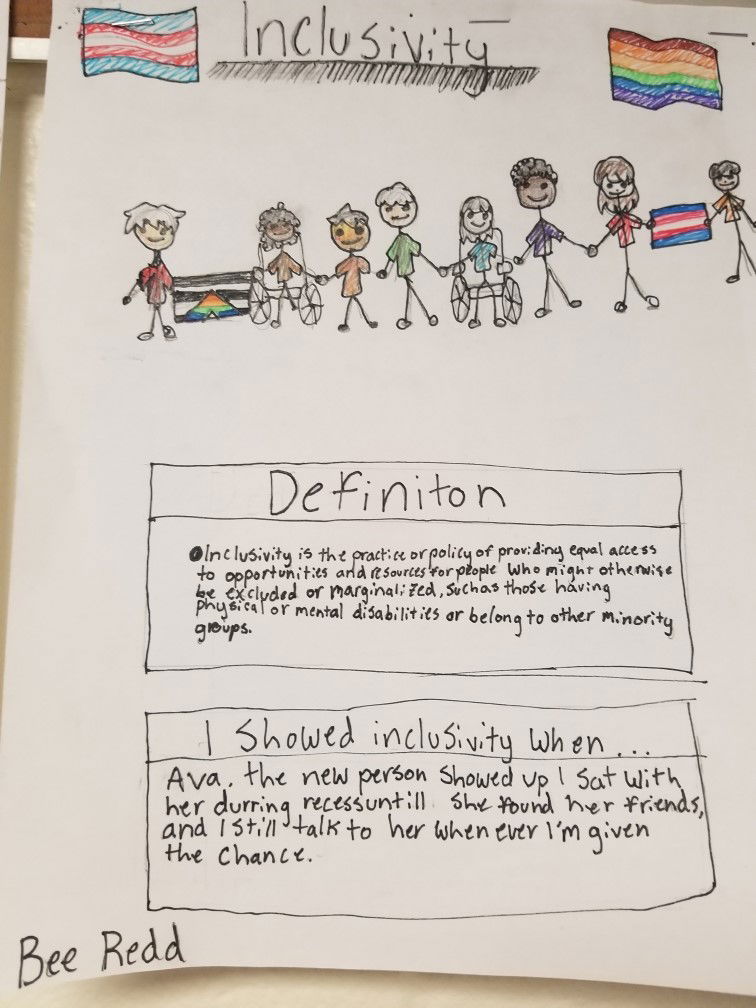 Inclusivity
Definiton
Inclusivity is the practice or policy of providing equal access
to opportunities and resources for people who might otherwise
be excluded or marginalized, such as those having
physical or mental disabilities or belong to other minority
groups.
I Showed inclusivity when...
Ava, the new person showed up I sat with
her durring recess untill she found her friends,
and I still talk to her when ever I'm given
the chance.
Bee Redd